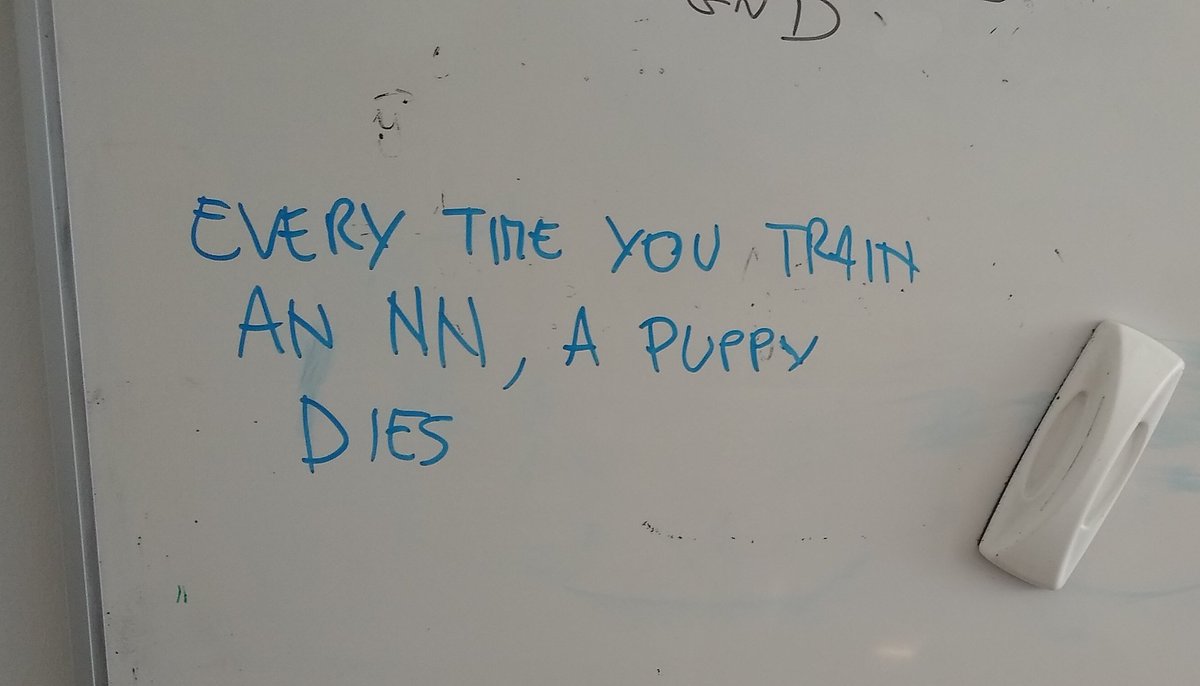 EVERY TIME YOU TRAIN
AN NN, A PUPPY
DIES